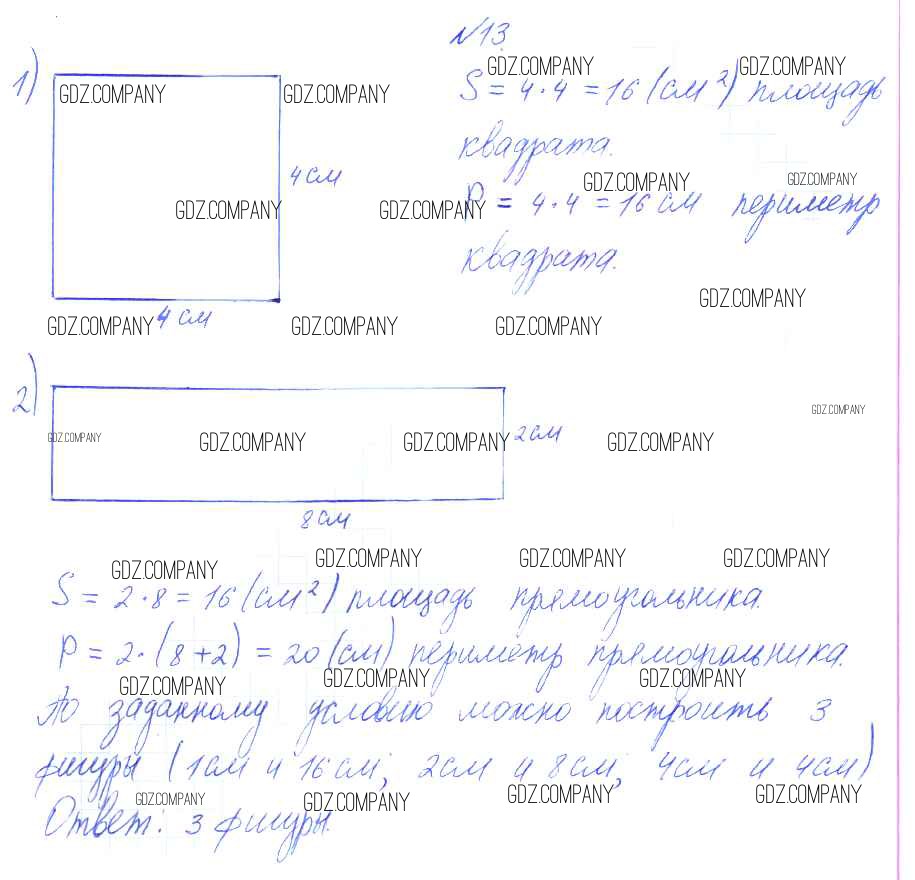 №13.
1)
GDZ.COMPANY GDZ.COMPANY GDZ.COMPANY GDZ.COMPANY
S = 4·4 = 16 (см²) площадь
квадрата.
4 см
GDZ.COMPANY GDZ.COMPANY
P = 4·4 = 16 см периметр
GDZ.COMPANY GDZ.COMPANY
квадрата.
GDZ.COMPANY
4 см
GDZ.COMPANY GDZ.COMPANY GDZ.COMPANY
2)
GDZ.COMPANY
GDZ.COMPANY GDZ.COMPANY GDZ.COMPANY GDZ.COMPANY
2 см
8 см
GDZ.COMPANY GDZ.COMPANY GDZ.COMPANY GDZ.COMPANY
S = 2·8 = 16 (см²) площадь прямоугольника.
P = 2·(8+2) = 20 (см) периметр прямоугольника.
GDZ.COMPANY GDZ.COMPANY GDZ.COMPANY
По заданному условию можно построить 3
фигуры (1см и 16см; 2см и 8см; 4см и 4см)
GDZ.COMPANY GDZ.COMPANY GDZ.COMPANY GDZ.COMPANY
Ответ: 3 фигуры.